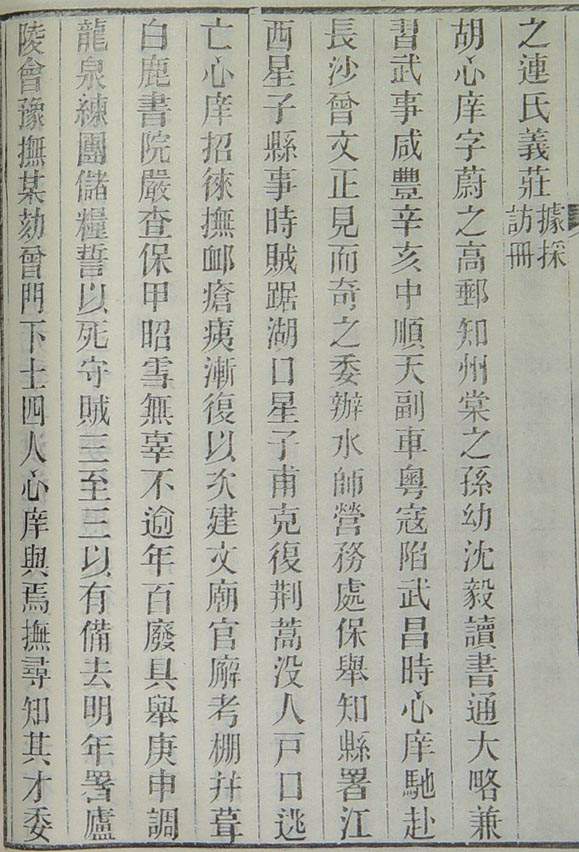 之連氏義莊據採訪冊
胡心庠字蔚之高郵知州棠之孫幼沈毅讀書通大略兼
習武事咸豐辛亥中順天副車粵寇陷武昌時心庠馳赴
長沙曾文正見而奇之委辦水師營務處保舉知縣署江
西星子縣事時賊踞湖口星子甫克復荆蒿没人戶口逃
亡心庠招徠撫卹瘡痍漸復以次建文廟官廨考棚幷葺
白鹿書院嚴查保甲昭雪無辜不逾年百廢具舉庚申調
龍泉練團儲糧誓以死守賊三至三以有備去明年署廬
陵會豫撫某劾曾門下士四人心庠與焉撫尋知其才委